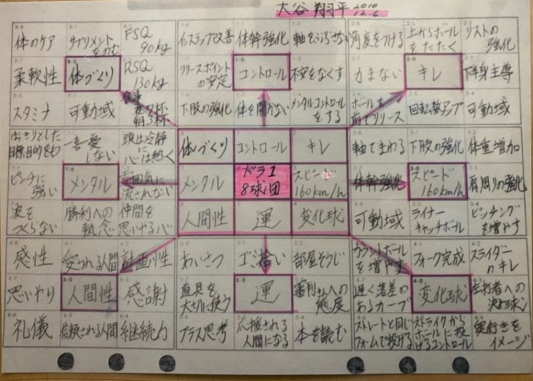 大谷翔平 2010 12.6
体のケア サプリメントをのむ FSQ 90kg インステップ改善 体幹強化 軸をぶらさない 角度をつける 上からボールをたたく リストの強化
柔軟性 体づくり RSQ 130kg リリースポイントの安定 コントロール 不安をなくす 力まない キレ 下半身主導
スタミナ 可動域 食事 夜7杯 朝3杯 下肢の強化 体を開かない メンタルコントロールをする ボールを前でリリース 回転数アップ 可動域
はっきりとした目標、目的をもつ 一喜一憂しない 頭は冷静に 心は熱く 体づくり コントロール キレ 軸でまわる 下肢の強化 体重増加
ピンチに強い メンタル 雰囲気に流されない メンタル ドラ1 8球団 スピード 160km/h 体幹強化 スピード 160km/h 肩周りの強化
波をつくらない 勝利への執念 仲間を思いやる心 人間性 運 変化球 可動域 ライナーキャッチボール ピッチングを増やす
感性 愛される人間 計画性 あいさつ ゴミ拾い 部屋そうじ カウントボールを増やす フォーク完成 スライダーのキレ
思いやり 人間性 感謝 道具を大切に使う 運 審判さんへの態度 遅く落差のあるカーブ 変化球 左打者への決め球
礼儀 信頼される人間 継続力 プラス思考 応援される人間になる 本を読む ストレートと同じフォームで投げる ストライクからボールに投げるコントロール 奥行きをイメージ